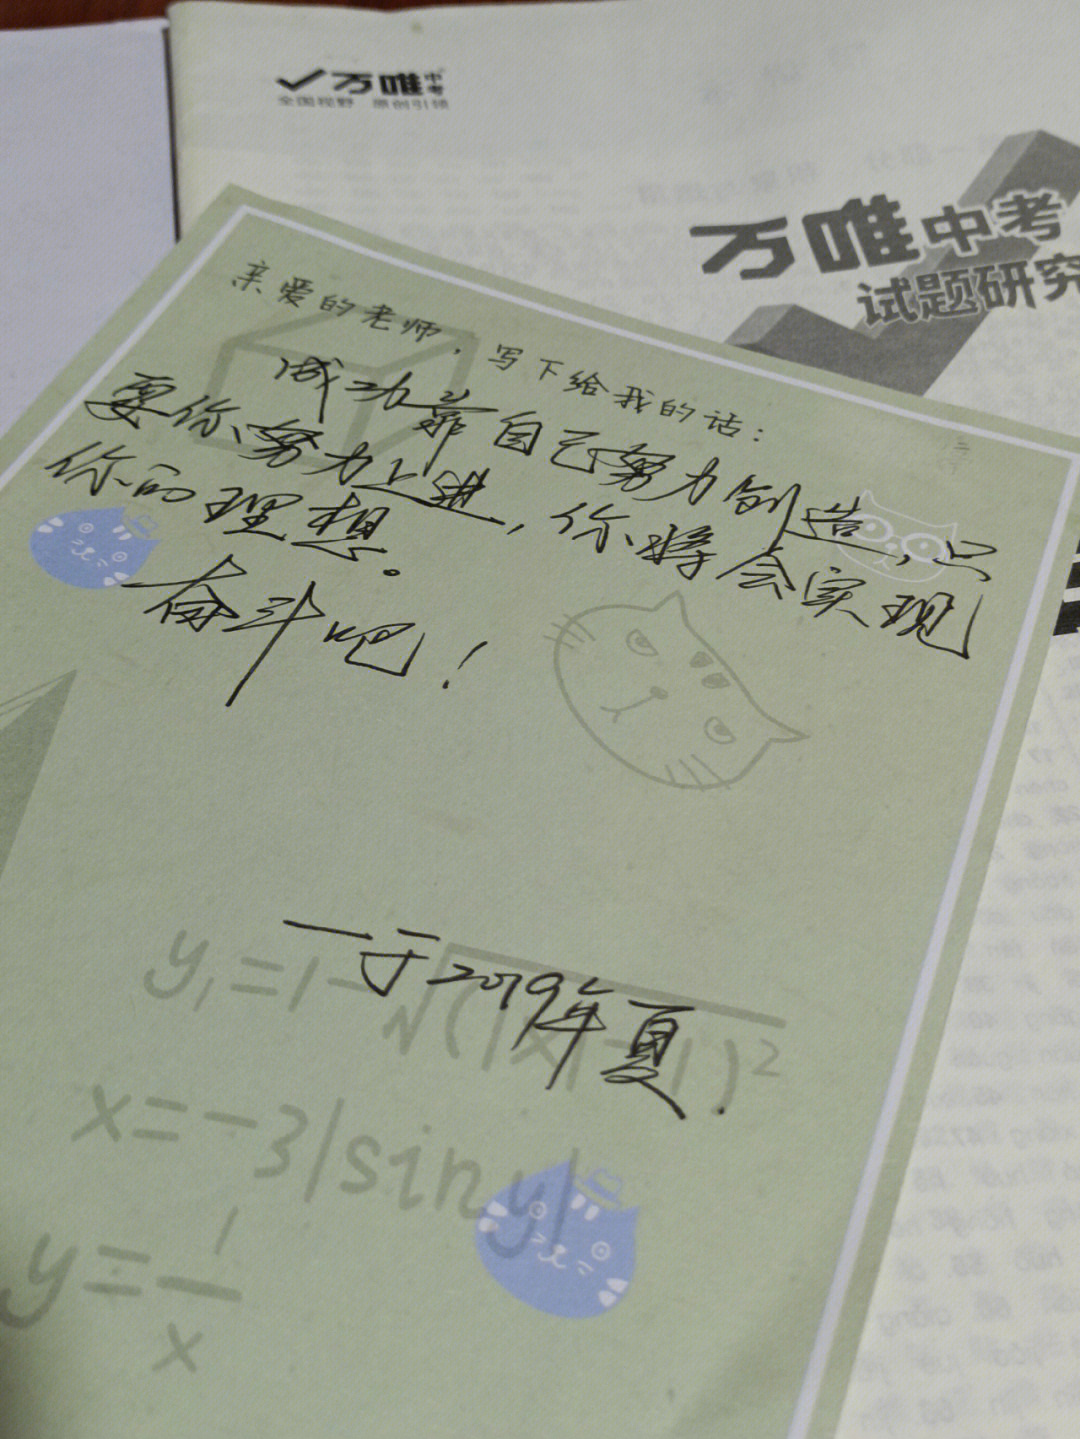 万唯中考
全国视野 原创引领
万唯中考
试题研究
亲爱的老师，写下给我的话：
成功靠自己努力创造，只
要你努力上进，你将会实现
你的理想。
奋斗吧！
一于2019年夏.
y₁=1-√(|x|-1)²
x=-3|siny|
y=1/x